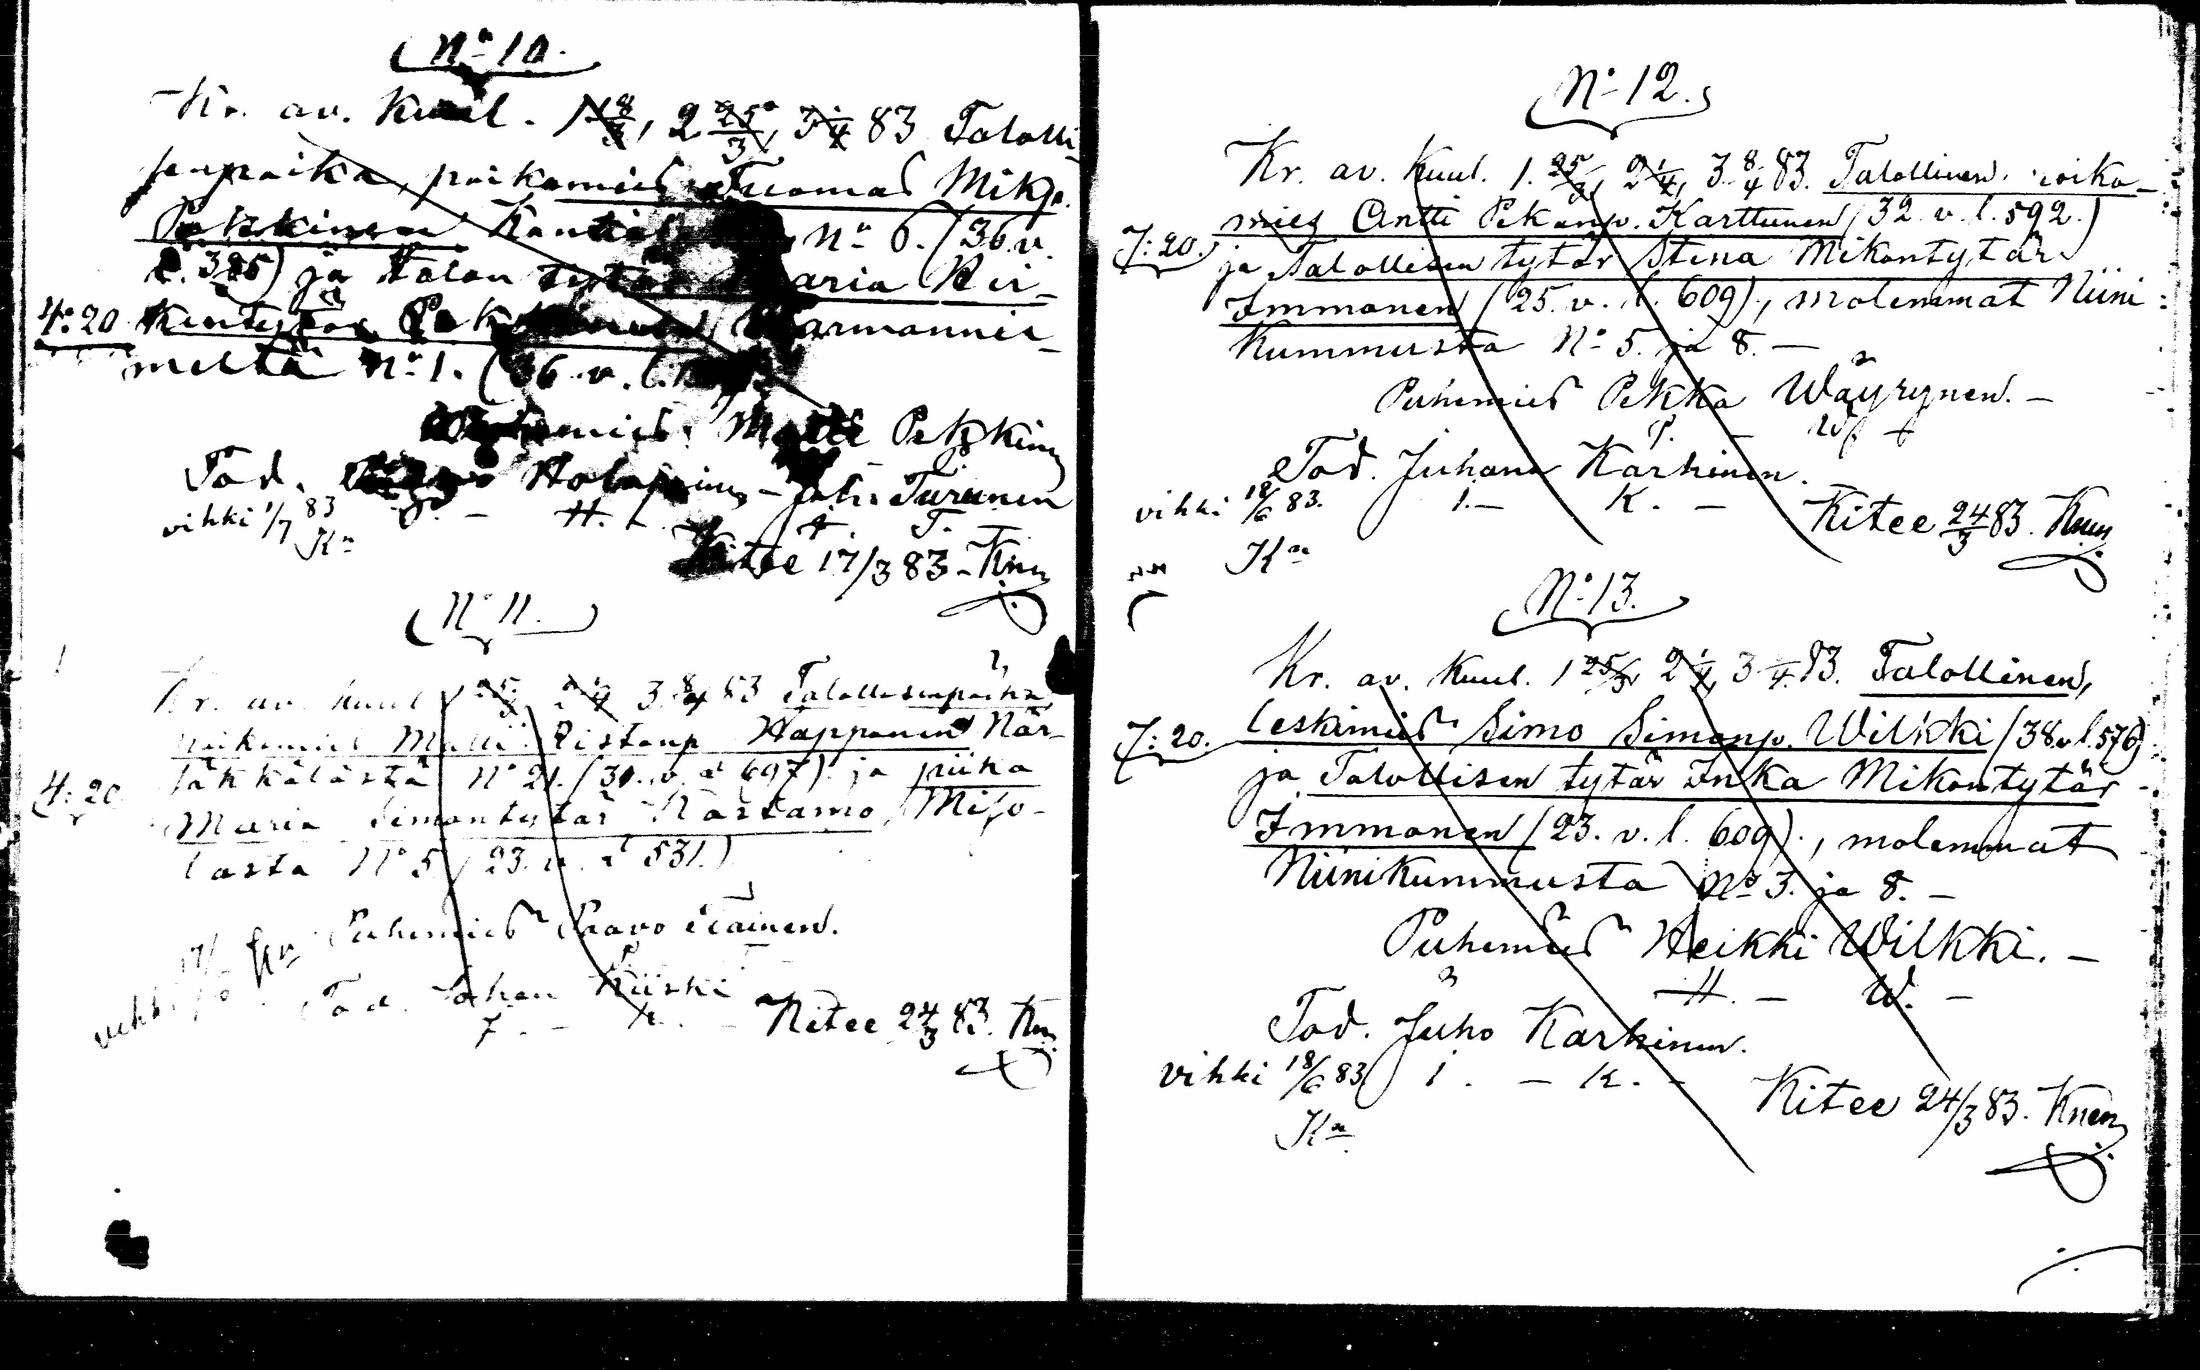 No 10.
Kr. av. Kuul. 1 18/3, 2 25/3, 3 1/4 83 Talolli-
senpoika, poikamies Tuomas Mikp.
Pekkinen No 6. (36 v.
l. 385) ja Talon Maria Hei-
4:20 kintytär
meltä No 1. (36 v. l.
Puhemies Matti Pekkinen
Tod. Holopainen - Turunen
vihki 1/7 83 H. - T. -
Kn
Kitee 17/3 83 - Knen
No 11.
Kr. av. kuul 1 25/3 2 1/4 3 8/4 83 Talollisenpoika
poikamies Matti Ristonp Happonen När-
säkkälästä No 21. (30. v. l 697) ja piika
4:20
Maria Simontytär Närsamo, Miso-
lasta No 5 (23. v. l 531.)
Puhemies Paavo
vihki Kn
Tod. Johan Kiiski
J. - K. -
Kitee 24/3 83. Knen
No 12.
Kr. av. Kuul. 1. 25/3, 2 1/4, 3 8/4 83. Talollinen. poika-
mies Antti Pekanp. Karttunen (32. v. l. 592.)
7:20. ja Talollisen tytär Stina Mikontytär
Immonen (25. v. l. 609), molemmat Niini:
kummusta No 5. ja 8. -
Puhemies Pekka Wäyrynen. -
P. - W. -
Tod. Juhana Karhinen.
vihki 18/6 83. I. - K. -
Kn
Kitee 24/3 83. Knen
No 13.
Kr. av. Kuul. 1 25/3, 2 1/4, 3 /4. 83. Talollinen,
7:20. leskimies Simo Simonp. Wilkki (38. v l. 576)
ja Talollisen tytär Inka Mikontytär
Immonen (23. v. l. 609)., molemmat
Niinikummusta No 3. ja 8. -
Puhemies Heikki Wilkki. -
H. - W. -
Tod. Juho Karhinen.
vihki 18/6 83 I. - K. -
Kn
Kitee 24/3 83. Knen